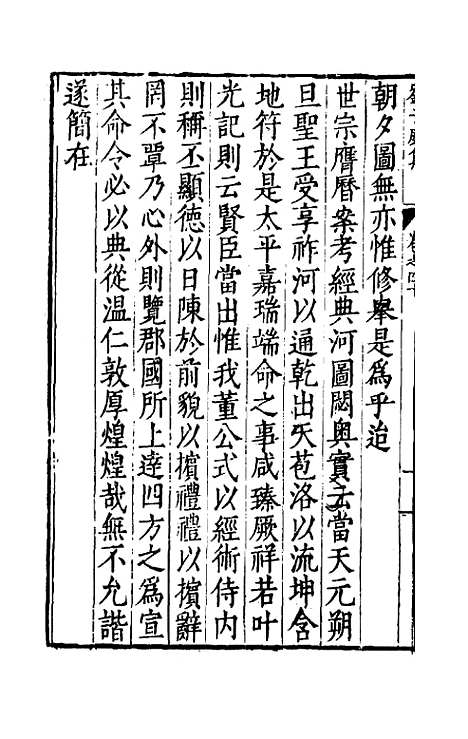 朝夕圖無亦惟修舉是爲乎迨
世宗膺曆案考經典河圖閟奥實云當天元朔
旦聖王受享祚河以通乾出天苞洛以流坤含
地符於是太平嘉瑞端命之事咸臻厥祥若叶
光記則云賢臣當出惟我董公式以經術侍内
則稱丕顯徳以日陳於前貌以擯禮禮以擯辭
罔不單乃心外則覽郡國所上達四方之爲宣
其命令必以典從温仁敦厚煌煌哉無不允諧
遂簡在